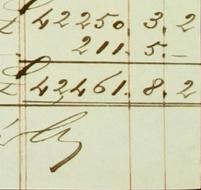 £ 42250. 3. 2
211. 5. –
£ 42461. 8. 2